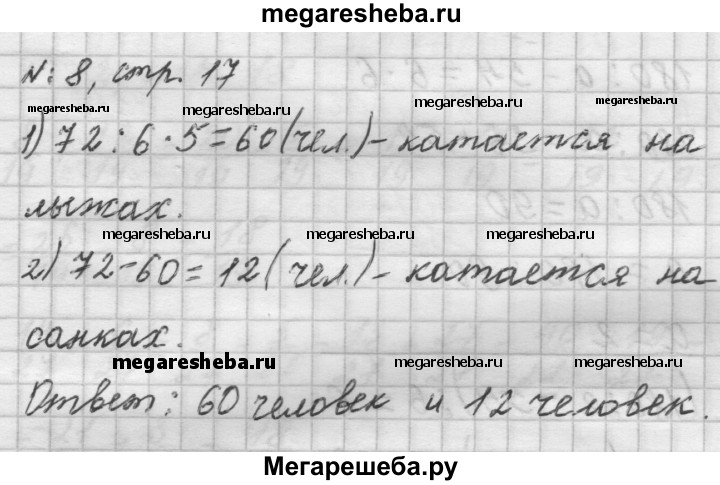 megaresheba.ru
№ 8, стр. 17
megaresheba.ru megaresheba.ru megaresheba.ru megaresheba.ru
1) 72 : 6 · 5 = 60 (чел.) - катается на
лыжах.
megaresheba.ru megaresheba.ru megaresheba.ru
2) 72 - 60 = 12 (чел.) - катается на
санках.
megaresheba.ru megaresheba.ru megaresheba.ru
Ответ: 60 человек и 12 человек.
Мегарешеба.ру